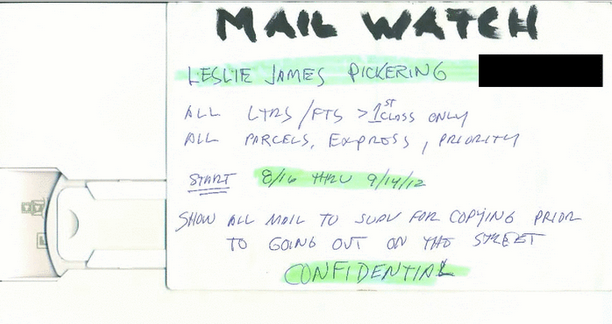 MAIL WATCH
LESLIE JAMES PICKERING
ALL LTRS/FTS > 1ST CLASS ONLY
ALL PARCELS, EXPRESS, PRIORITY
START 8/16 THRU 9/14/12
SHOW ALL MAIL TO SUPV FOR COPYING PRIOR
TO GOING OUT ON THE STREET
CONFIDENTIAL